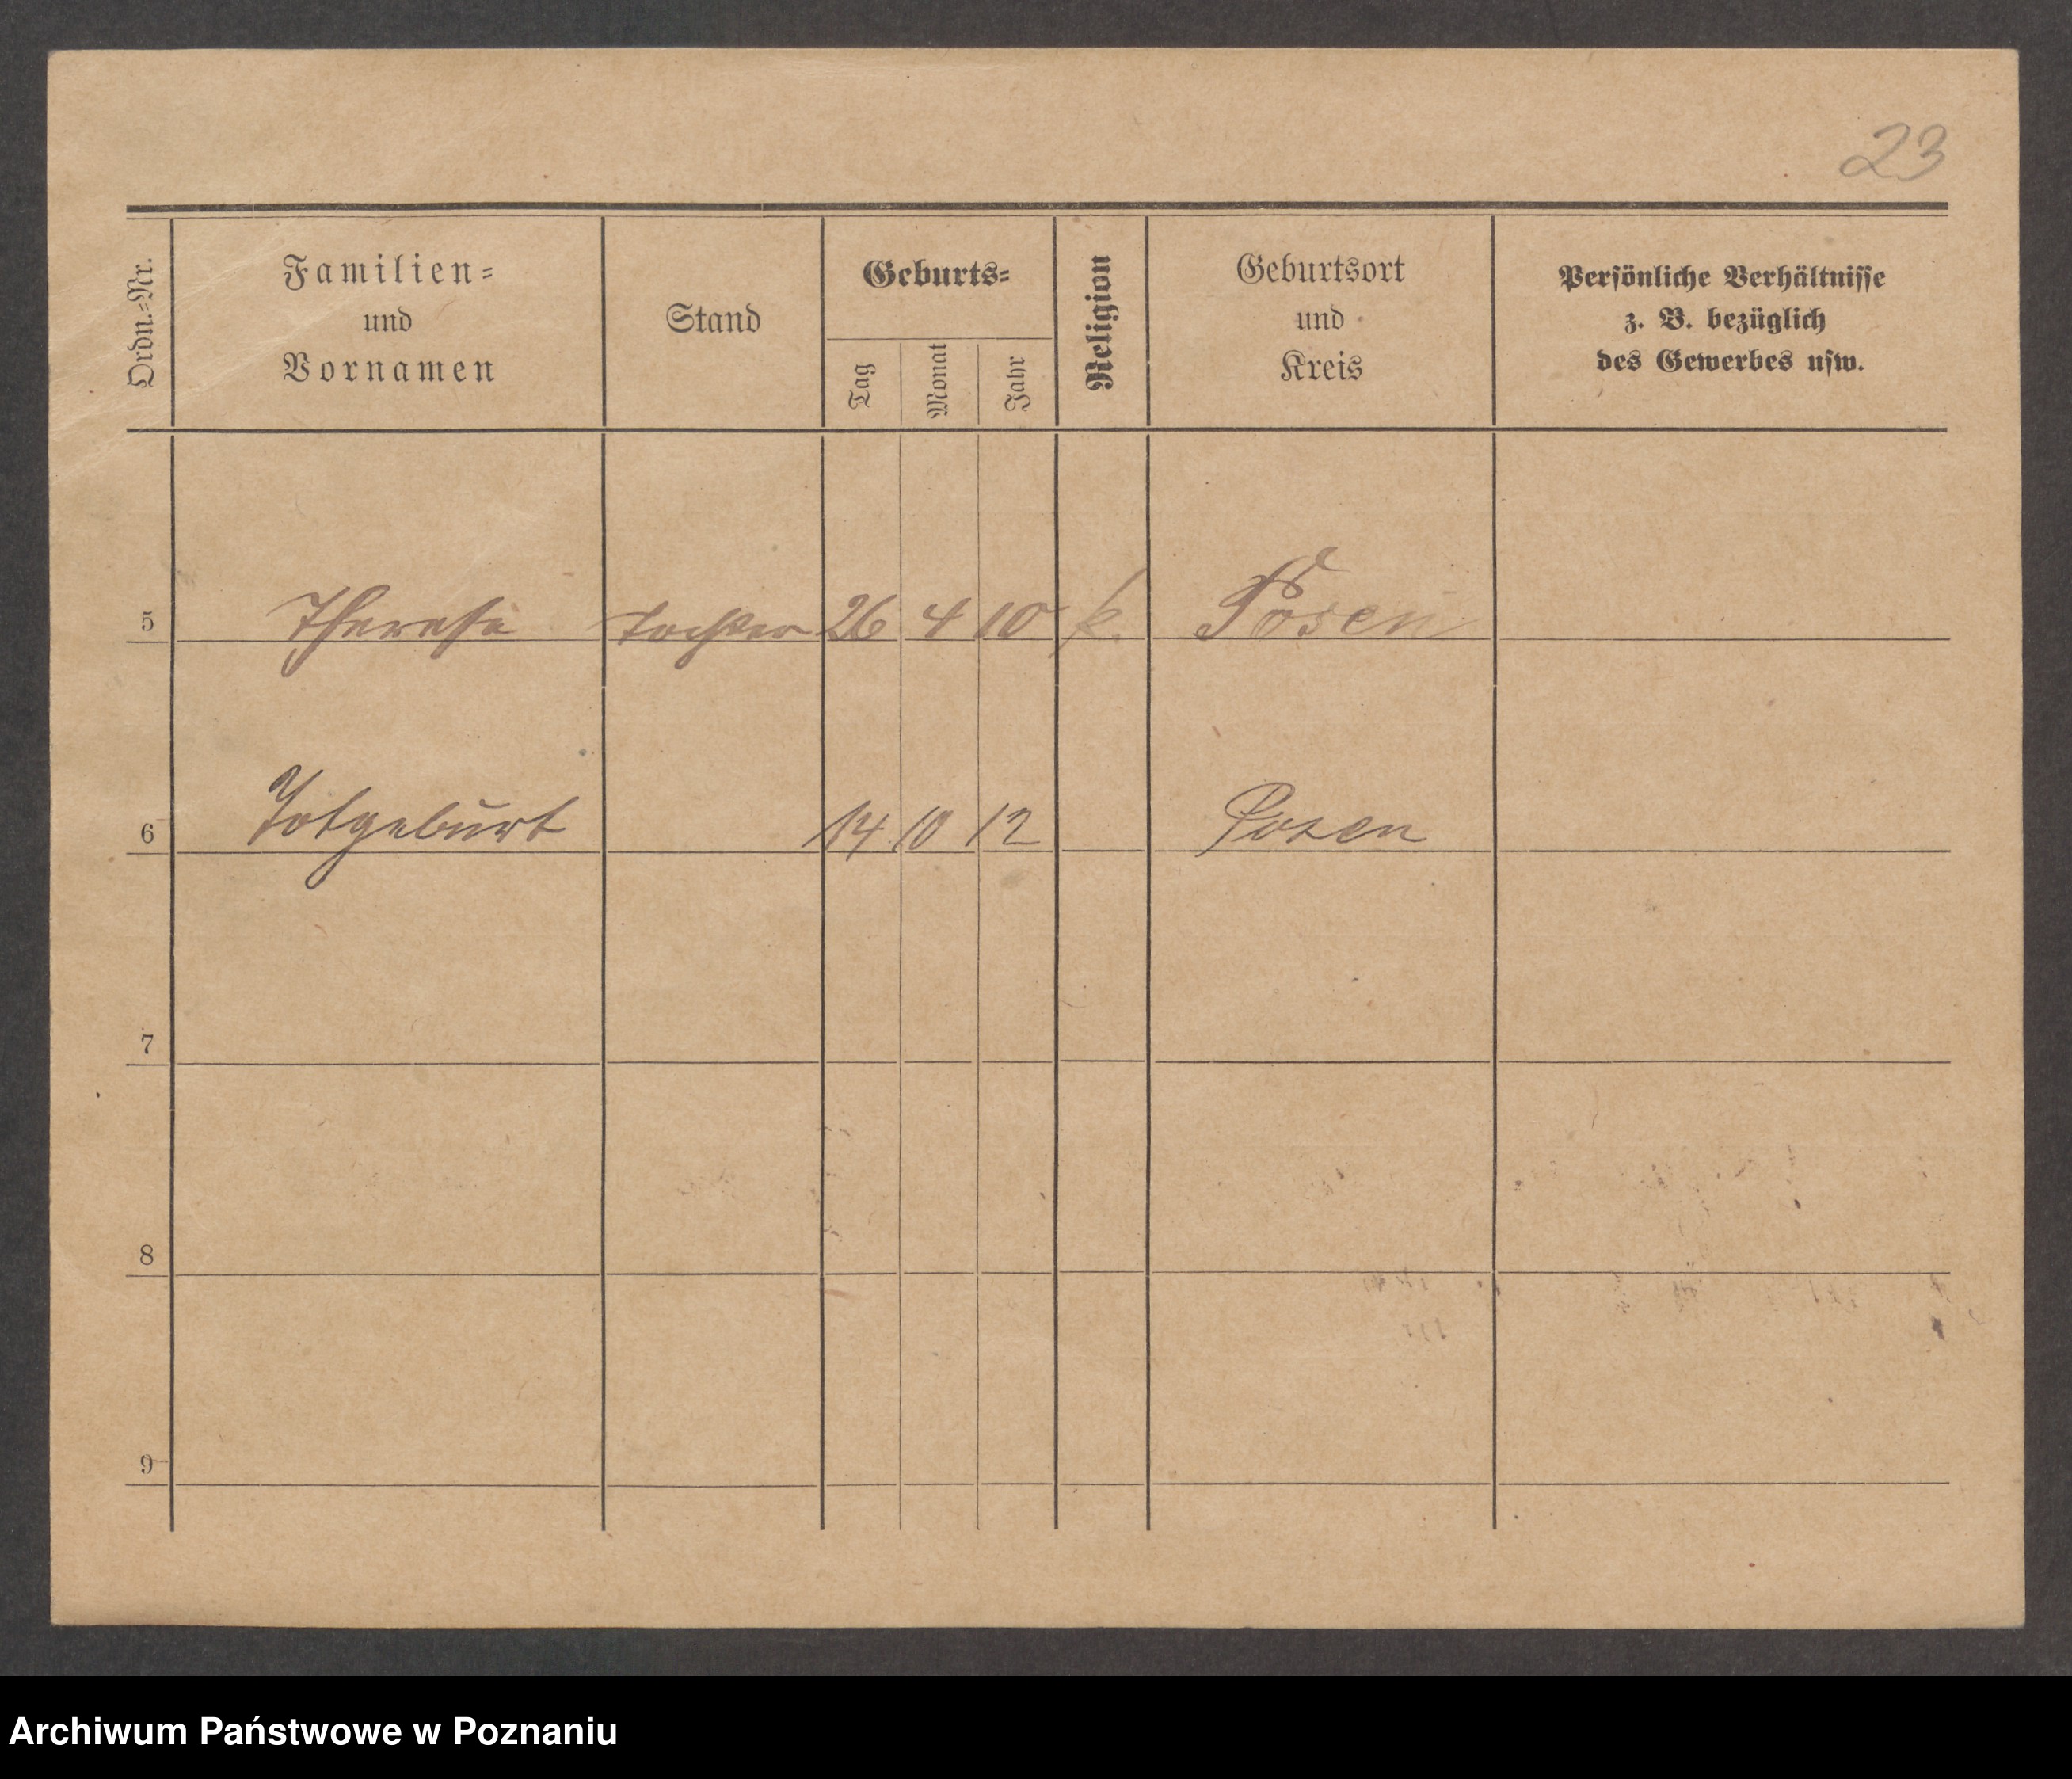 23
Ordn.-Nr.
Familien-
und
Vornamen
Stand
Geburts-
Tag
Monat
Jahr
Religion
Geburtsort
und
Kreis
Persönliche Verhältnisse
z. B. bezüglich
des Gewerbes usw.
5 Therese Tochter 26 4 10 k. Posen
6 Totgeburt 14 10 12 Posen
7
8
9
Archiwum Państwowe w Poznaniu